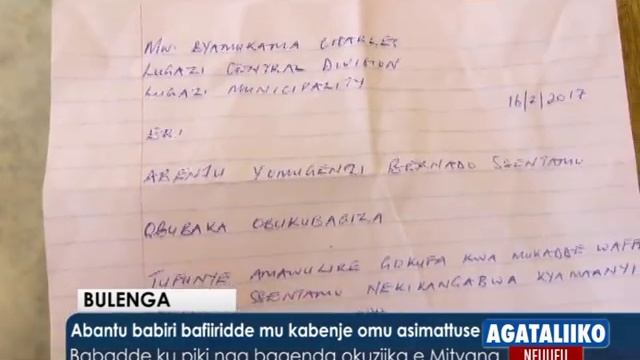 MW. BYAMUKAMA CHARLES
LUGAZI CENTRAL DIVISION
LUGAZI MUNICIPALITY
16/2/2017
ERI
ABENJU YOMUGENZI BERNADO SSENTAMU
OBUBAKA OBUKUBAGIZA
TUFUNYE AMAWULIRE GOKUFA KWA MUKADDE WAFFE
SSENTAMU NEKIKANGABWA KYAMAANYI
BULENGA
Abantu babiri bafiiridde mu kabenje omu asimattuse
AGATALIIKO
Babadde ku piki nga bagenda okuziika e Mityana